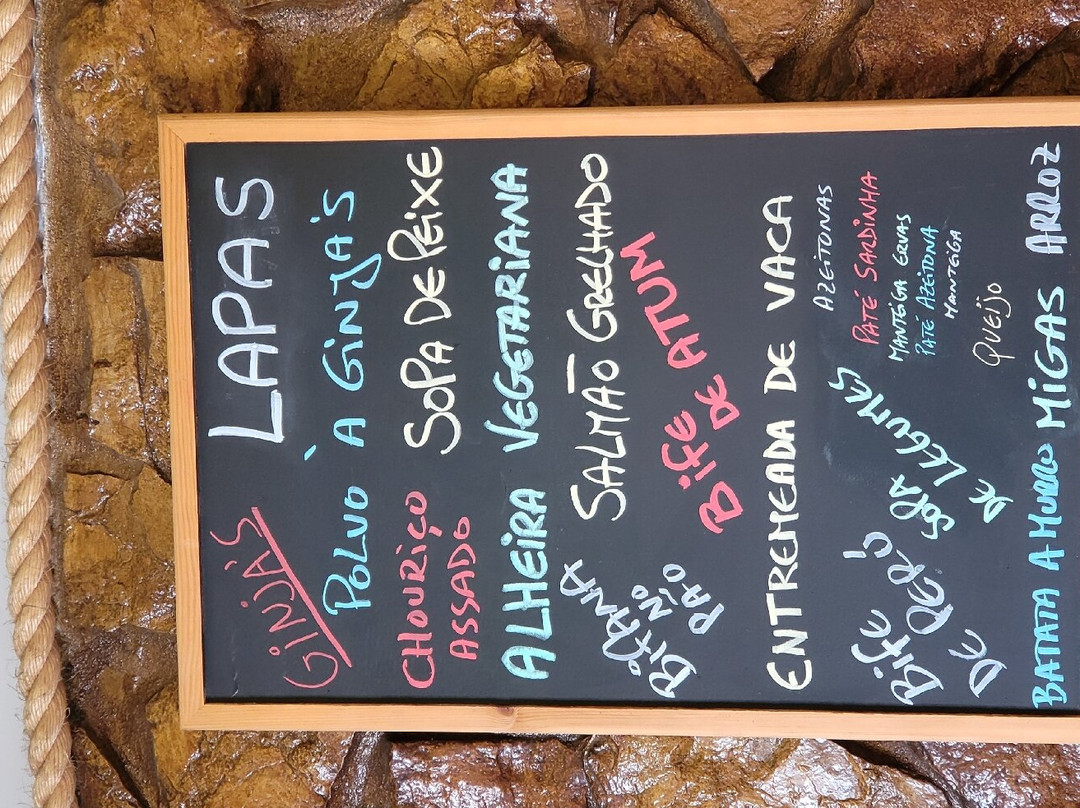 GiNJA'S
LAPAS
POLVO À GiNJA'S
CHOURIÇO
ASSADO
SOPA DE PEIXE
ALHEIRA VEGETARIANA
BIFANA
NO
PÃO
SALMÃO GRELHADO
BIFE
DE ATUM
ENTREMEADA DE VACA
BIFE
DE PERÚ
SOPA
DE LEGUMES
AZEITONAS
PATÉ SARDINHA
MANTEIGA ERVAS
PATÉ AZEITONA
MANTEIGA
QUEIJO
BATATA A MURRO MIGAS ARROZ